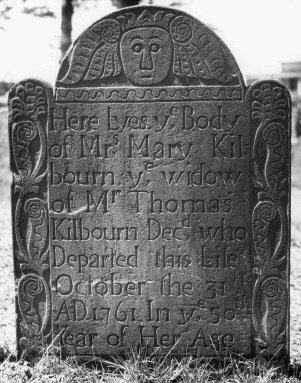 Here Lyes yᵉ Body
of Mrˢ Mary Kil-
bourn yᵉ widow
of Mʳ Thomas
Kilbourn Decᵈ who
Departed this Life
October the 31
AD 1761. In yᵉ 50ᵗʰ
Year of Her Age